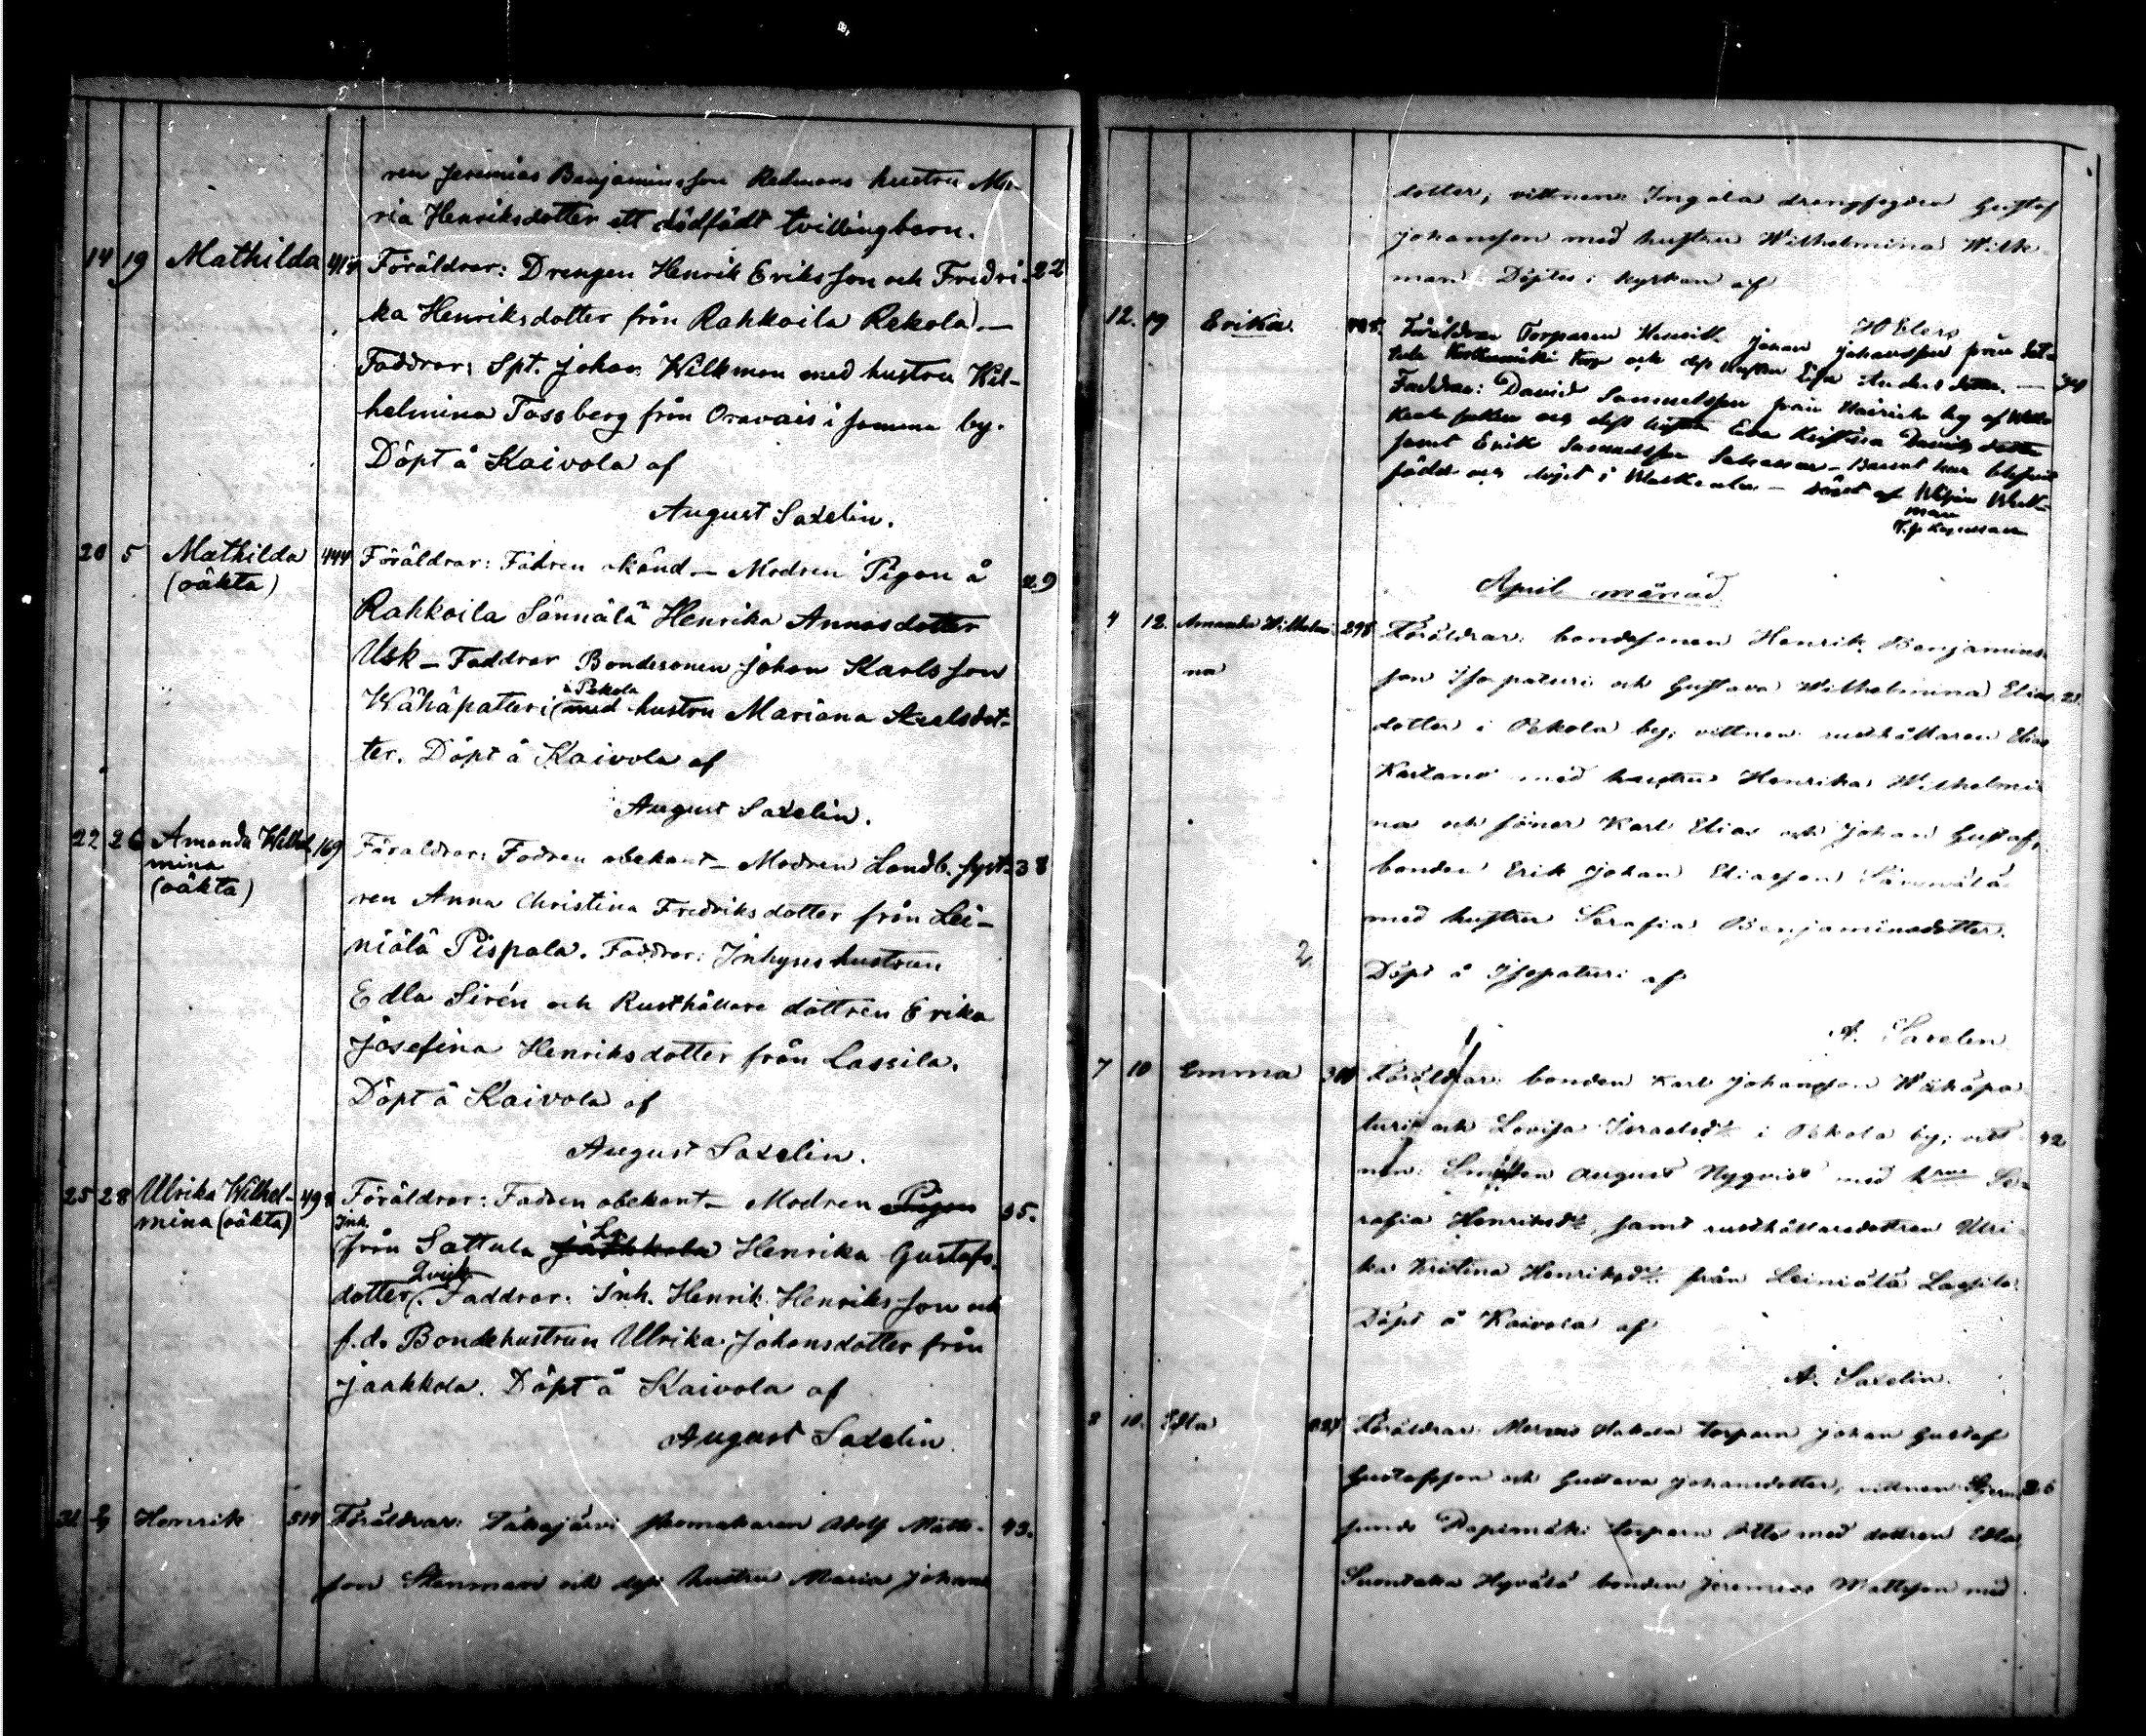 ren Jeremias Benjaminsson Redmans hustru Ma-
ria Henriksdotter ett dödfödt tvillingbarn.
14 19 Mathilda 414 Föräldrar: Drengen Henrik Eriksson och Fredri- 22
ka Henriksdotter från Rahkoila Rekola —
Faddrar: Spt. Johan Wilkman med hustru Wil-
helmina Tassberg från Oravais i samma by.
Döpt å Kaivola af
August Saxelin.
20 5 Mathilda 444 Föräldrar: Fadren okänd — Modren Pigan å 29
(oäkta)
Rahkoila Sännälä Henrika Annasdotter
Usk — Faddrar Bondesonen Johan Karlsson
å Pekola
Wähäpatteri med hustru Mariana Axelsdot-
ter. Döpt å Kaivola af
August Saxelin.
22 26 Amanda Wilhel- 169 Föräldrar: Fadren obekant — Modren Landb. syst- 38
mina
(oäkta)
ren Anna Christina Fredriksdotter från Lei-
niälä Pispala. Faddrar: Inhyses hustrun
Edla Sirén och Rusthållare dottren Erika
Josefina Henriksdotter från Lassila.
Döpt å Kaivola af
August Saxelin.
25 28 Ulrika Wilhel- 498 Föräldrar: Fadren obekant — Modren Pigan 35.
mina (oäkta)
Inh.
från Sattula Jaakkola Henrika Gustafs-
Qvick
dotter. Faddrar: Inh. Henrik Henriksson och
f.d. Bondehustrun Ulrika Johansdotter från
Jaakkola. Döpt å Kaivola af
August Saxelin.
31 Henrik 514 Föräldrar: Takajärvi skomakaren Adolf Matts- 43.
son Stenman och dess hustru Maria Johans
dotter, vittnen Ingala drengfogden Gustaf
Johansson med hustru Wilhelmina Wilk-
man. Döptes i kyrkan af
H Elers
12. 19 Erika. Föräldrar Torparen Henrik Johan Johansson från Sat-
tula torp och dess hustru Lisa Anders dotter. —
Faddrar: David Samuelsson från by af
och dess hustru Eva Kristina Davids dotter
samt Erik Samuelsson — Barnet har blifvit
född och döpt i — döpt af
man
April månad
4 12. Amanda Wilhelmi- 298 Föräldrar: bondesonen Henrik Benjamins-
na
son Isopaturi och Gustava Wilhelmina Elias- 23.
dotter i Pekola by; vittnen rusthållaren Elias
Kartano med hustru Henrika Wilhelmi-
na och söner Karl Elias och Johan Gustaf,
bonden Erik Johan Eliasson Sännälä
med hustru Serafia Benjaminsdotter.
Döpt å Isopaturi af
A. Saxelin
7 10 Emma Föräldrar: bonden Karl Johansson Wähäpa-
turi och Lovisa Israelsdr i Pekola by; vitt- 42
nen: Smeden August Nygvist med hrun Se-
rafia Henriksdr, samt rusthållaredottren Ulri-
ka Kristina Henriksdr från Leiniälä Lassila.
Döpt å Kaivola af
A. Saxelin.
8 10. Edla Föräldrar: Mervis Hakala torparn Johan Gustaf
Gustafsson och Gustava Johansdotter, vittnen: 26
sunds Papinmäki torparn Otto med dottren Edla,
Suontaka Hyvälä bonden Jeremias Mattsson med